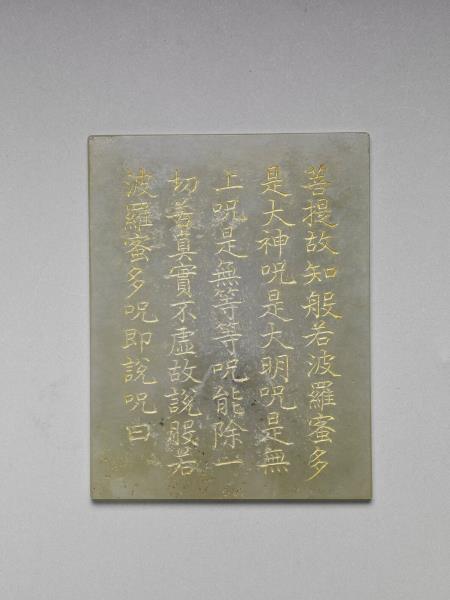 菩提故知般若波羅蜜多
是大神呪是大明呪是無
上呪是無等等呪能除一
切苦真實不虛故說般若
波羅蜜多呪即說呪曰